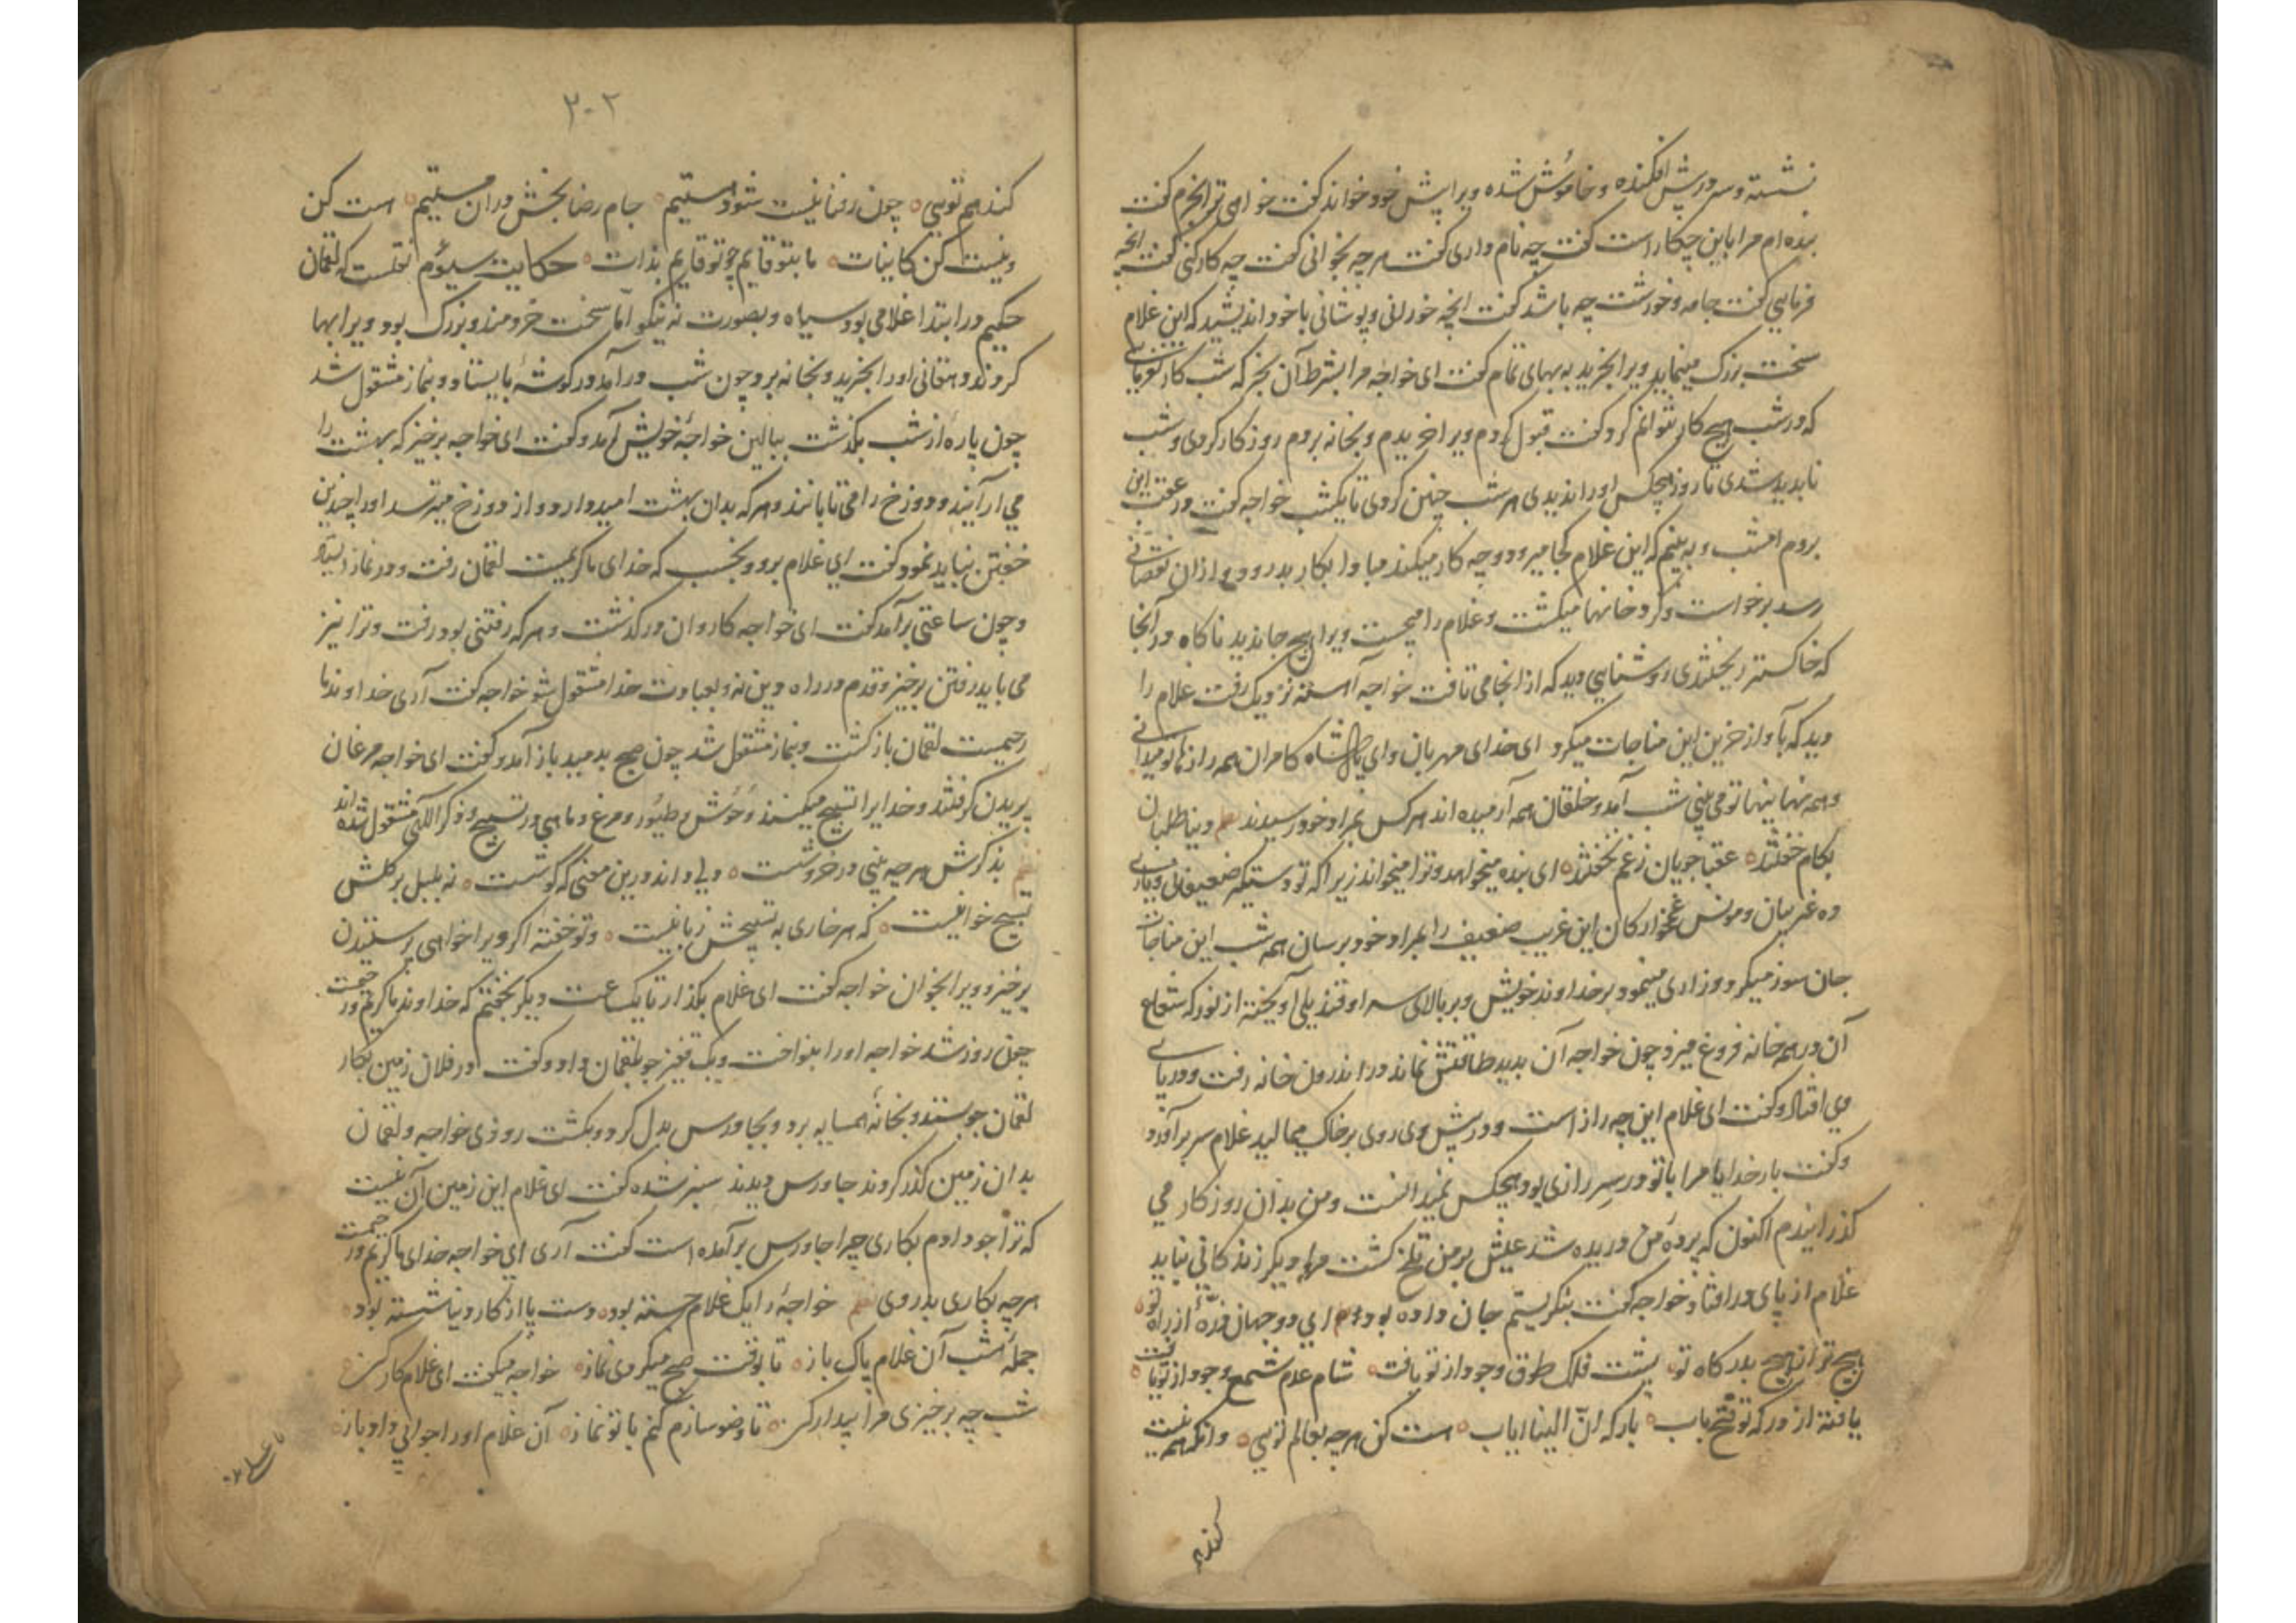 نشسته و سر در پیش افکنده و خاموش شده ویرا پیش خود خواند گفت خواهی ترا بخرم گفت
بنده ام مرا باین چکار است گفت چه نام داری گفت هر چه بخوانی گفت چه کار کنی گفت انچه
فرمایی گفت جامه و خورشت چه باشد گفت انچه خورانی و پوشانی با خود اندیشید که این غلام
سخت بزرک مینماید ویرا بخرید به بهای تمام گفت ای خواجه مرا بشرط آن بخر که شب کار نفرمایی
که در شب هیچ کار نتوانم کرد گفت قبول کردم ویرا خریدم و بخانه بردم روز کار کردی و شب
نابدید شدی تا روز هیچکس او را ندیدی هر شب چنین کردی تا یکشب خواجه گفت در عقب این
بروم امشب و ببینم که این غلام کجا میرود و چه کار میکند مبادا بکار بد رود و از ان نقصانی
رسد برخواست و کرد خانها میکشت و غلام را میجست ویرا هیچ جا ندید ناکاه در آنجا
که خاکستر ریختندی روشنایی دید که از انجا می تافت خواجه آهسته نزدیک رفت غلام را
دید که بآواز حزین این مناجات میکرد ای خدای مهربان و ای پادشاه کامران همه رازها تو میدانی
و همه نهانیها تو می بینی شب آمد و خلقان همه آرمیده اند هر کس بمراد خود رسیدند دنیا طلبان
بکام خفتند عقبا جویان ز غم نخفتند ای بنده میخواهد و ترا میخواند زیرا که تو دستگیر ضعیفانی و یاری
ده غریبان و مونس غمخوارکان این غریب ضعیف را بمراد خود برسان همه شب این مناجات
جان سوز میکرد و زاری مینمود بر خداوند خویش و بر بالای سر او قندیلی آویخته از نور که شعاع
آن در همه خانه فروغ میزد چون خواجه آن بدید طاقتش نماند در اندرون خانه رفت و در پای
وی افتاد و گفت ای غلام این چه راز است و در پیش وی روی بر خاک میمالید غلام سر برآورد
و گفت بار خدایا مرا با تو در سر رازی بود هیچکس نمیدانست و من بدان روزکار می
کذرانیدم اکنون که پرده من دریده شد عیش بر من تلخ کشت مرا دیکر زندکانی نباید
غلام از پای در افتاد خواجه گفت بنکریستم جان داده بود ای دو جهان ذرّهٔ از راه تو
هیچ تر از هیچ بدرکاه تو پشت فلک طوق وجود از تو یافت شام عدم شمع وجود از تو یافت
یافته از درکه تو فتح باب بارکه انّ الینا ایاب هست کن هر چه بعالم تویی وانکه همه نیست
کند هم
۲۰۲
کند هم تویی چون ز فنا نیست شود هستیم جام رضا بخش در ان مستیم هست کن
و نیست کن کاینات ما بتو قایم چو تو قایم بذات حکایت سیوم نقلست که لقمان
حکیم در ابتدا غلامی بود سیاه و بصورت نه نیکو امّا سخت خردمند و بزرک بود ویرا بها
کردند دهقانی او را بخرید و بخانه برد چون شب در آمد در کوشهٔ بایستاد و بنماز مشغول شد
چون پاره از شب بکذشت ببالین خواجهٔ خویش آمد و گفت ای خواجه برخیز که بهشت را
می آرایند و دوزخ را می تابانند و هر که بدان بهشت امیدوار و از دوزخ میترسد او را چندین
خفتن نباید نمود گفت ای غلام برو و بخسب که خدای ما کریمست لقمان رفت و در نماز ایستاد
و چون ساعتی برآمد گفت ای خواجه کاروان در کذشت و هر که رفتنی بود رفت و ترا نیز
می باید رفتن برخیز و قدم در راه دین نه و بعبادت خدا مشغول شو خواجه گفت آری خداوند ما
رحیمست لقمان بازکشت و بنماز مشغول شد چون صبح بدمید باز آمد و گفت ای خواجه مرغان
پریدن کرفتند و خدایرا تسبیح میکنند وحوش و طیور و مرغ و ماهی در تسبیح و ذکر اللّهی مشغول شده اند
بذکرش هر چه بینی در خروشت ولی داند درین معنی که کوشت نه بلبل بر کلش
تسبیح خوانیست که هر خاری به تسبیحش زبانیست و تو خفته اکر ویرا خواهی پرستیدن
برخیز و ویرا بخوان خواجه گفت ای غلام بکذار تا یکساعت دیکر بخفتم که خداوند ما کریم و رحیمست
چون روز شد خواجه او را بنواخت و یک قفیز جو بلقمان داد و گفت در فلان زمین بکار
لقمان جو بستد و بخانهٔ همسایه برد و بجاورس بدل کرد و بکشت روزی خواجه و لقمان
بدان زمین کذر کردند جاورس دیدند سبز شده گفت ای غلام این زمین آن نیست
که ترا جو دادم بکاری چرا جاورس برآمده است گفت آری ای خواجه خدای ما کریم و رحیمست
هر چه بکاری بدروی خواجهٔ را یک غلام خسته بود دست پا از کار دنیا شسته بود
جمله شب آن غلام پاک باز تا بوقت صبح میکردی نماز خواجه میکفت ای غلام کارکن
شب چه برخیزی مرا بیدار کن تا وضو سازم کنم با تو نماز آن غلام او را جوابی داد باز